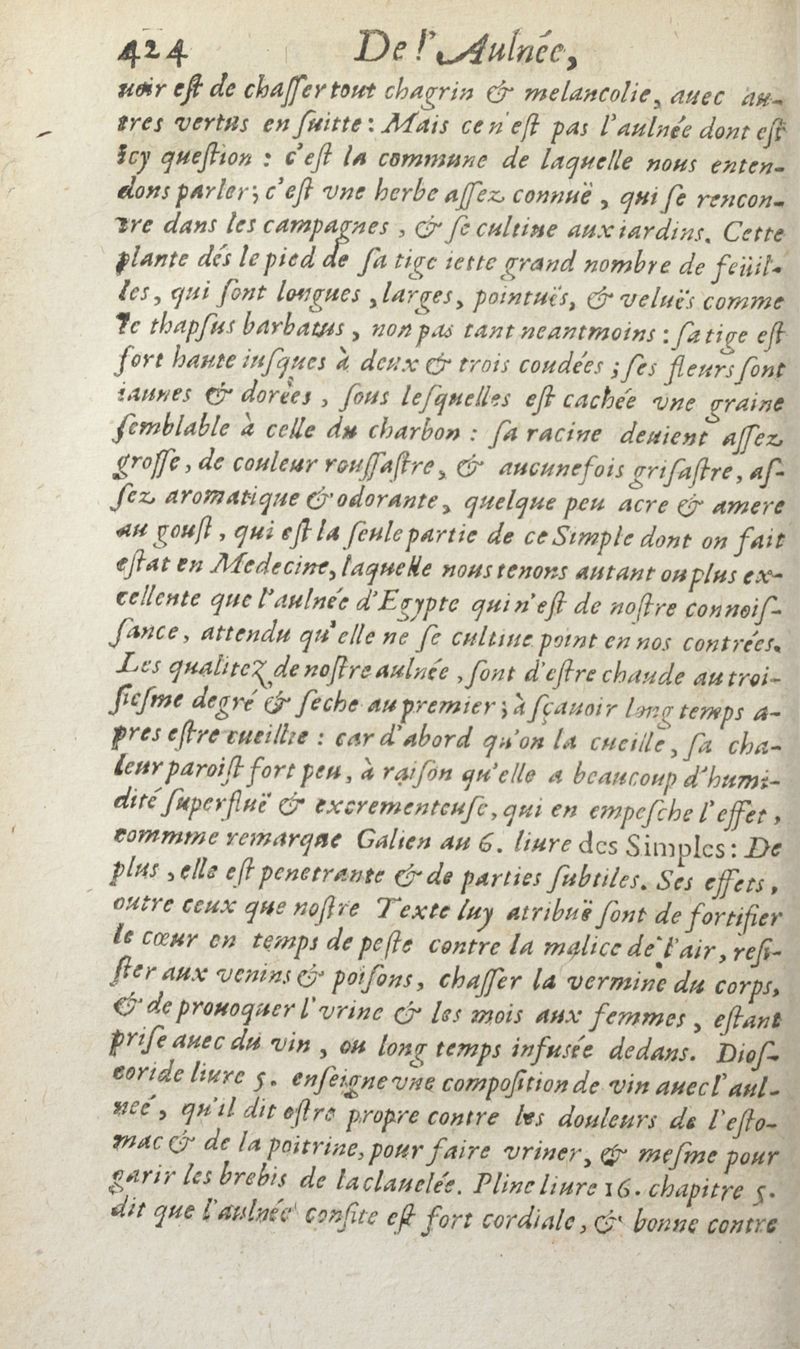 424 De l'Aulnée,
uoir eſt de chaſſer tout chagrin & melancolie, auec au-
tres vertus en ſuitte : Mais ce n'eſt pas l'aulnée dont eſt
icy queſtion : c'eſt la commune de laquelle nous enten-
dons parler ; c'eſt vne herbe aſſez connuë , qui ſe rencon-
tre dans les campagnes , & ſe cultiue aux iardins. Cette
plante dés le pied de ſa tige iette grand nombre de feüil-
les, qui ſont longues , larges, pointuës, & veluës comme
le thapſus barbatus , non pas tant neantmoins : ſa tige eſt
fort haute iuſques à deux & trois coudées ; ſes fleurs ſont
iaunes & dorées , ſous leſquelles eſt cachée vne graine
ſemblable à celle du charbon : ſa racine deuient aſſez
groſſe, de couleur rouſſaſtre, & aucunefois griſaſtre, aſ-
ſez aromatique & odorante, quelque peu acre & amere
au gouſt , qui eſt la ſeule partie de ce Simple dont on fait
eſtat en Medecine, laquelle nous tenons autant ou plus ex-
cellente que l'aulnée d'Egypte qui n'eſt de noſtre connoiſ-
ſance, attendu qu'elle ne ſe cultiue point en nos contrées.
Les qualitez de noſtre aulnée , ſont d'eſtre chaude au troi-
ſieſme degré & ſeche au premier ; à ſçauoir long temps a-
pres eſtre cueillie : car d'abord qu'on la cueille, ſa cha-
leur paroiſt fort peu, à raiſon qu'elle a beaucoup d'humi-
dité ſuperfluë & excrementeuſe, qui en empeſche l'effet ,
commme remarque Galien au 6. liure des Simples : De
plus , elle eſt penetrante & de parties ſubtiles. Ses effets ,
outre ceux que noſtre Texte luy atribuë ſont de fortifier
le cœur en temps de peſte contre la malice de l'air, reſi-
ſter aux venins & poiſons, chaſſer la vermine du corps,
& de prouoquer l'vrine & les mois aux femmes , eſtant
priſe auec du vin , ou long temps infusée dedans. Dioſ-
coride liure 5. enſeigne vne compoſition de vin auec l'aul-
née, qu'il dit eſtre propre contre les douleurs de l'eſto-
mac & de la poitrine, pour faire vriner, & meſme pour
garir les brebis de la clauelée. Pline liure 16. chapitre 5.
dit que l'aulnée confite eſt fort cordiale, & bonne contre